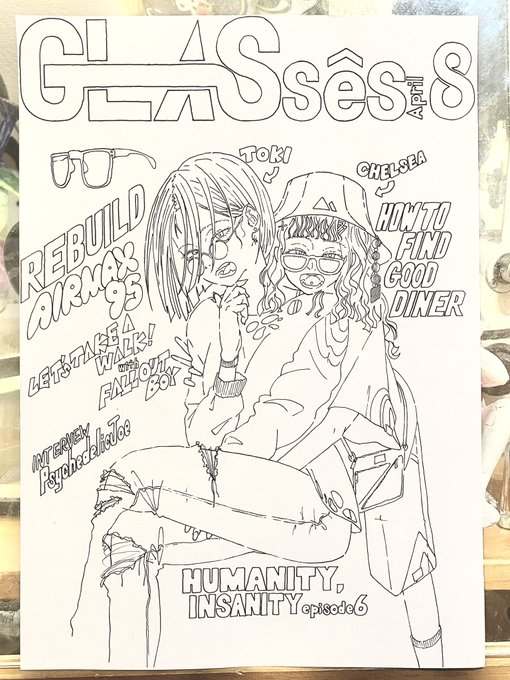 GLASsês April 8
TOKI
CHELSEA
REBUILD
AIRMAX
95
HOW TO
FIND
GOOD
DINER
LET'S TAKE A
WALK!
with
FALL OUT
BOY
INTERVIEW
PsychedelicJoe
HUMANITY,
INSANITY episode6